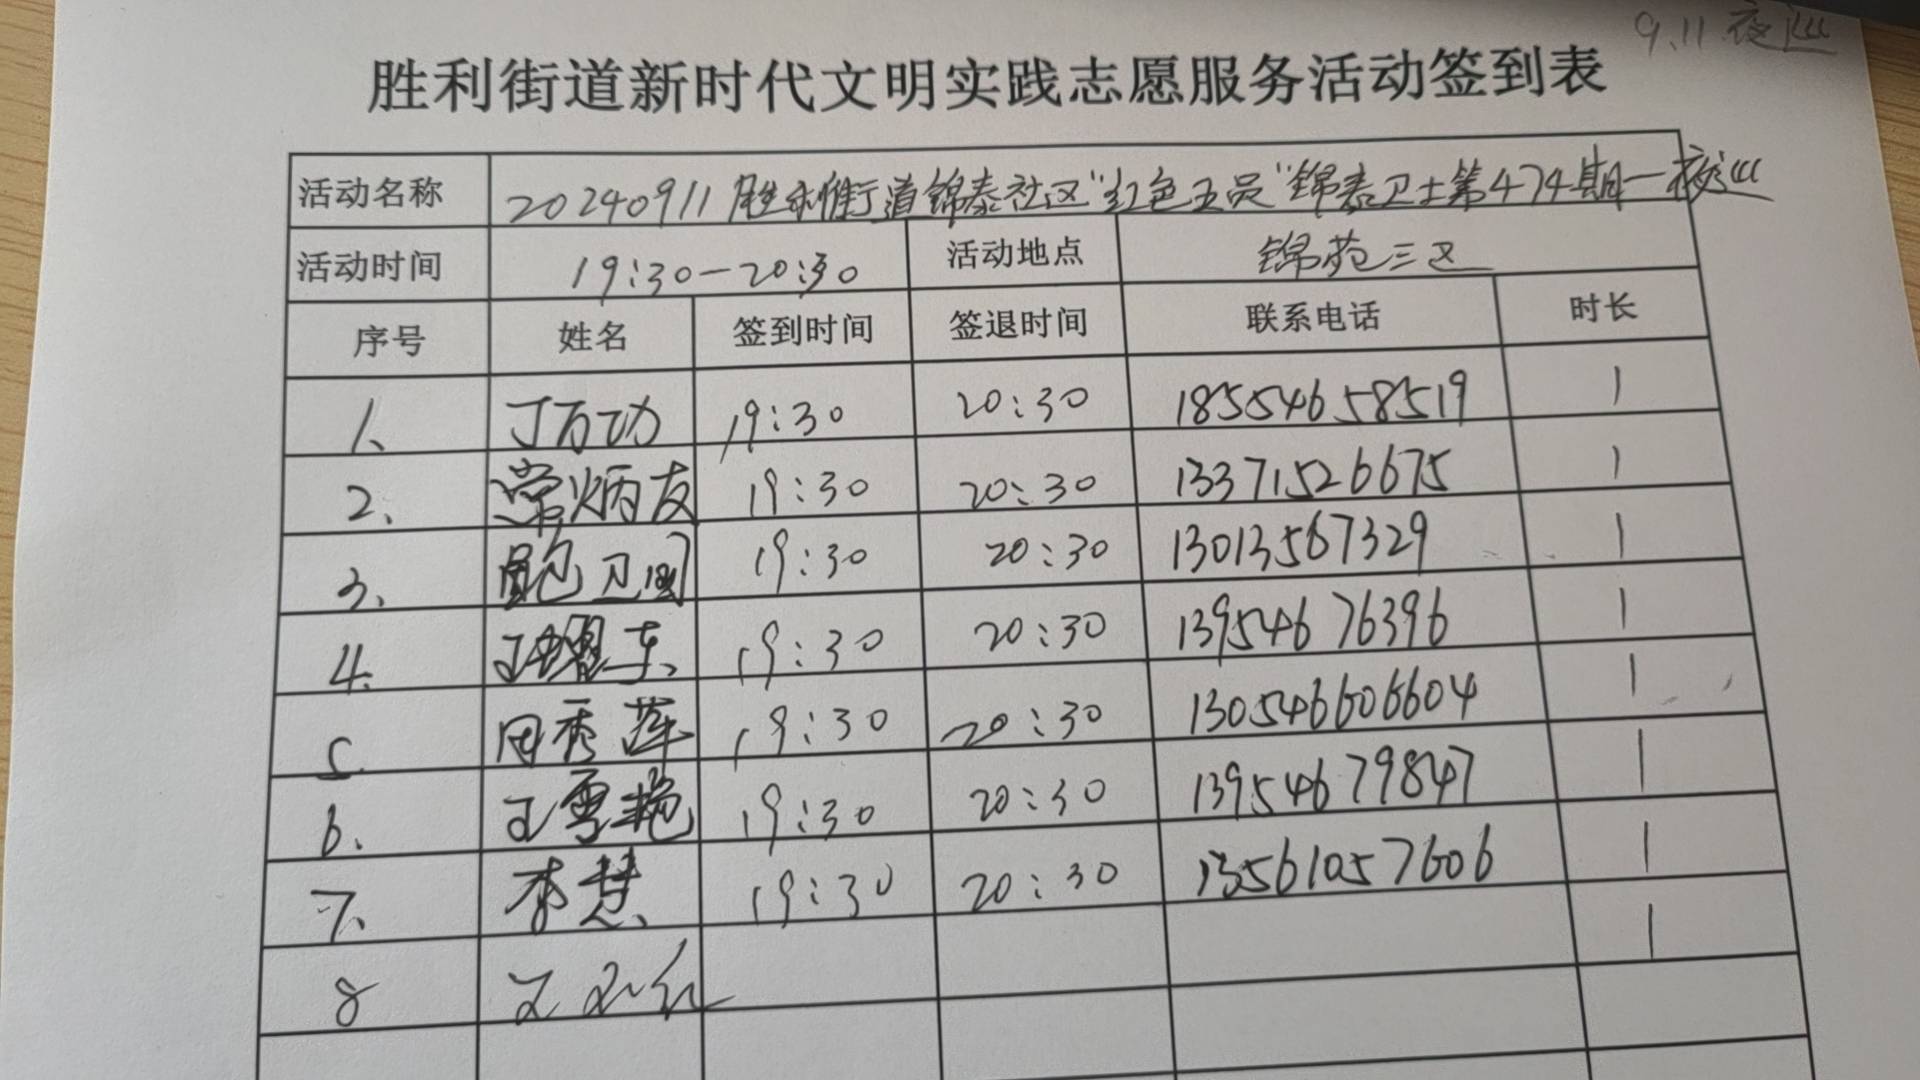 9.11 夜巡
胜利街道新时代文明实践志愿服务活动签到表
活动名称 20240911胜利街道锦泰社区"红色五员"锦泰卫士第474期—夜巡
活动时间 19:30—20:30 活动地点 锦苑三区
序号 姓名 签到时间 签退时间 联系电话 时长
1、 丁万功 19:30 20:30 18554658519 1
2、 常炳友 19:30 20:30 13371526675 1
3、 鲍卫国 19:30 20:30 13013567329 1
4. 王耀东 19:30 20:30 13954676396 1
5 田秀莲 19:30 20:30 130546606604 1
6、 王雪艳 19:30 20:30 13954679847 1
7、 李慧 19:30 20:30 13561057606 1
8 王 红 1